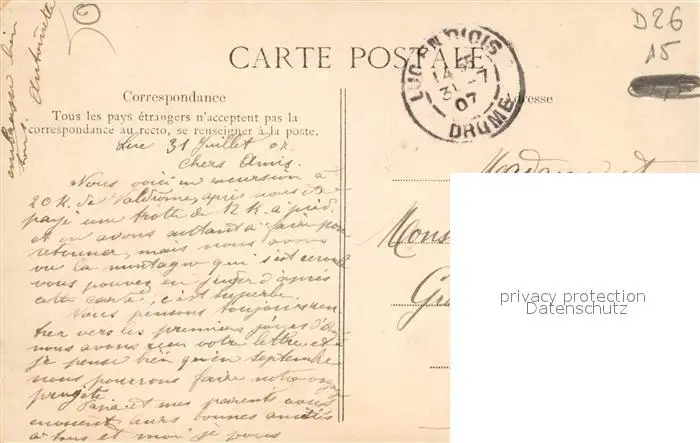 embrasse bien
tous. Antoinette
D26
15
CARTE POSTALE
LUC-EN-DIOIS
14
31-7
07
DROME
Correspondance
Tous les pays étrangers n'acceptent pas la
correspondance au recto, se renseigner à la poste.
Adresse
Luc 31 Juillet 07.
Chers Amis.
Nous voici en excursion à
20 K. de Valdrôme, après nous être
payé une trotte de 12 K. à pied.
et en avons autant à faire pour
retourner, mais nous avons
vu la montagne qui s'est écroulé
vous pouvez en juger d'après
cette carte, c'est superbe.
Nous pensons toujours ren-
trer vers les premiers jours d'
nous avons reçu votre lettre et
je pense bien qu'en septembre
nous pourrons faire notre voyage
projeté.
Papa et mes parents vous
envoient leurs bonnes amitiés
à tous et moi je vous
Madame et
Mons
Gr
privacy protection
Datenschutz